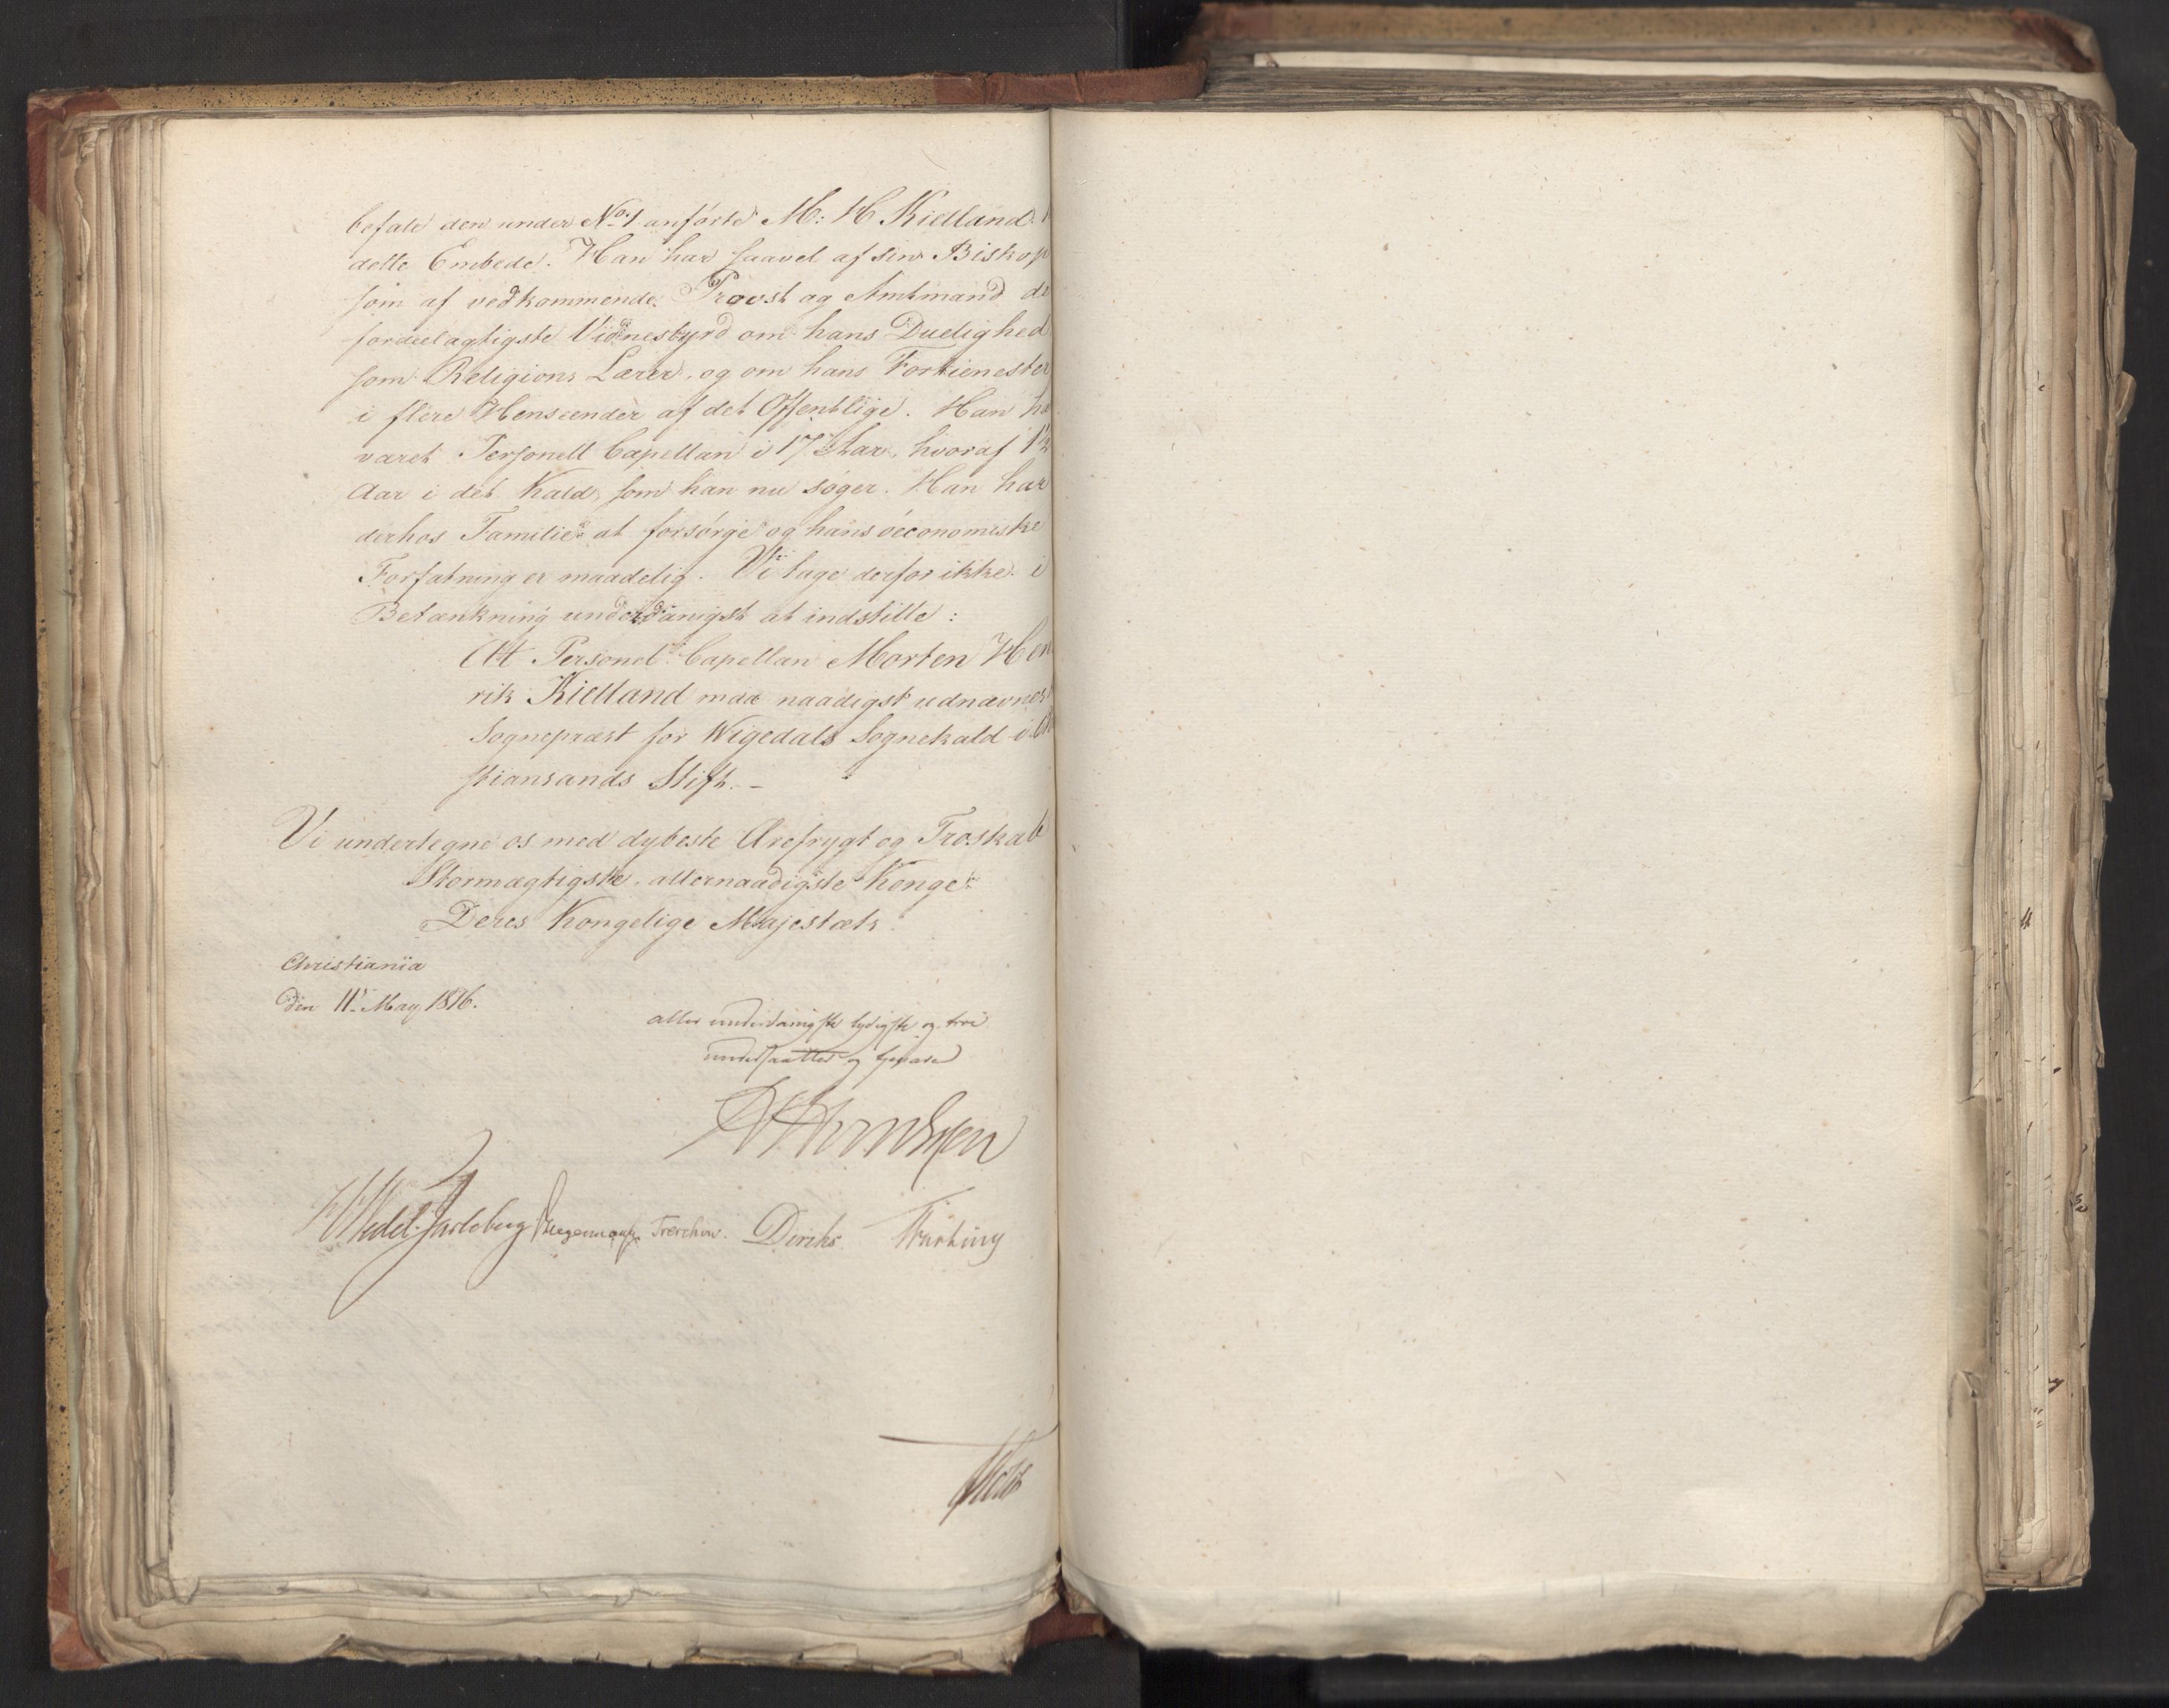 befale den under No. 1 anførte M: H Kielland
dette Embede. Han har saavel af sin Biskop
som af vedkommende Provst og Amtmand de
fordeelagtigste Vidnesbyrd om hans Duelighed
som Religions Lærer, og om hans Fortienester
i flere Henseender af det Offentlige. Han ha
været Personell Capellan i 17 Aar, hvoraf 1½
Aar i det Kald, som han nu søger. Han har
derhos Familie at forsørge og hans oeconomiske
Forfatning er maadelig. Vi tage derfor ikke i
Betænkning underdanigst at indstille:
At Personel Capellan Morten Hen
rik Kielland maa naadigst udnævnes
Sognepræst for Wigedals Sognekald i Ch
stiansands Stift. –
Vi undertegne os med dybeste Ærefrygt og Troskab
Stormægtigste, allernaadigste Konge
Deres Kongelige Majestæts
Christiania
den 11. May 1816.
aller underdanigste lydigste og troe
undersaatter og tjenere
H Wedel Jarlsberg Hegermann Treschow. Diriks Motzfeldt